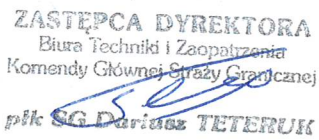 ZASTĘPCA DYREKTORA
Biura Techniki i Zaopatrzenia
Komendy Głównej Straży Granicznej
płk SG Dariusz TETERUK